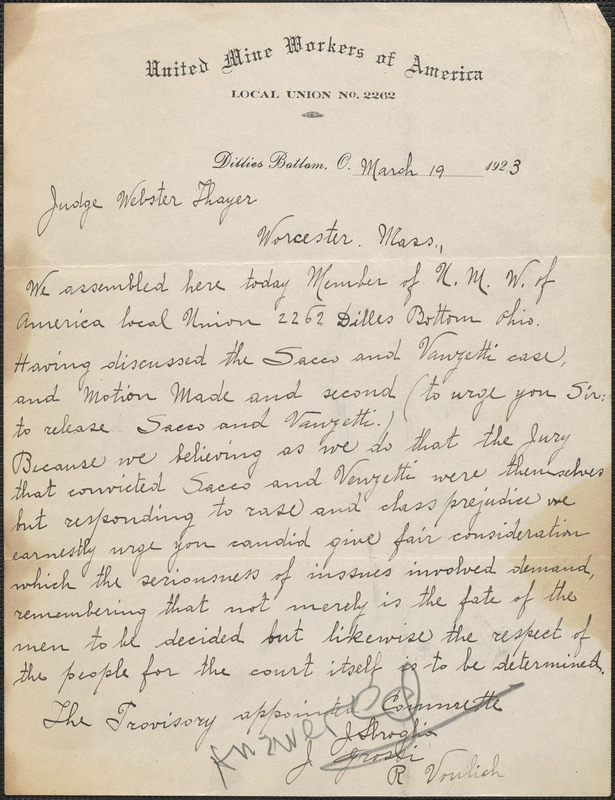 United Mine Workers of America
LOCAL UNION NO. 2262
Dillies Bottom, O. March 19 1923
Judge Webster Thayer
Worcester. Mass.,
We assembled here today Member of U. M. W. of
America local Union 2262 Dilles Bottom Ohio.
Having discussed the Sacco and Vanzetti case,
and Motion Made and second (to urge you Sir:
to release Sacco and Vanzetti.)
Because we believing as we do that the Jury
that convicted Sacco and Venzetti were themselves
but responding to rase and class prejudice we
earnestly urge you candid give fair consideration
which the seriousness of inssues involved demand,
remembering that not merely is the fate of the
men to be decided but likewise the respect of
the people for the court itself is to be determined.
The Provisory appointed Commrette
answered
J. Sbroglio
J Grossi
R Voulich